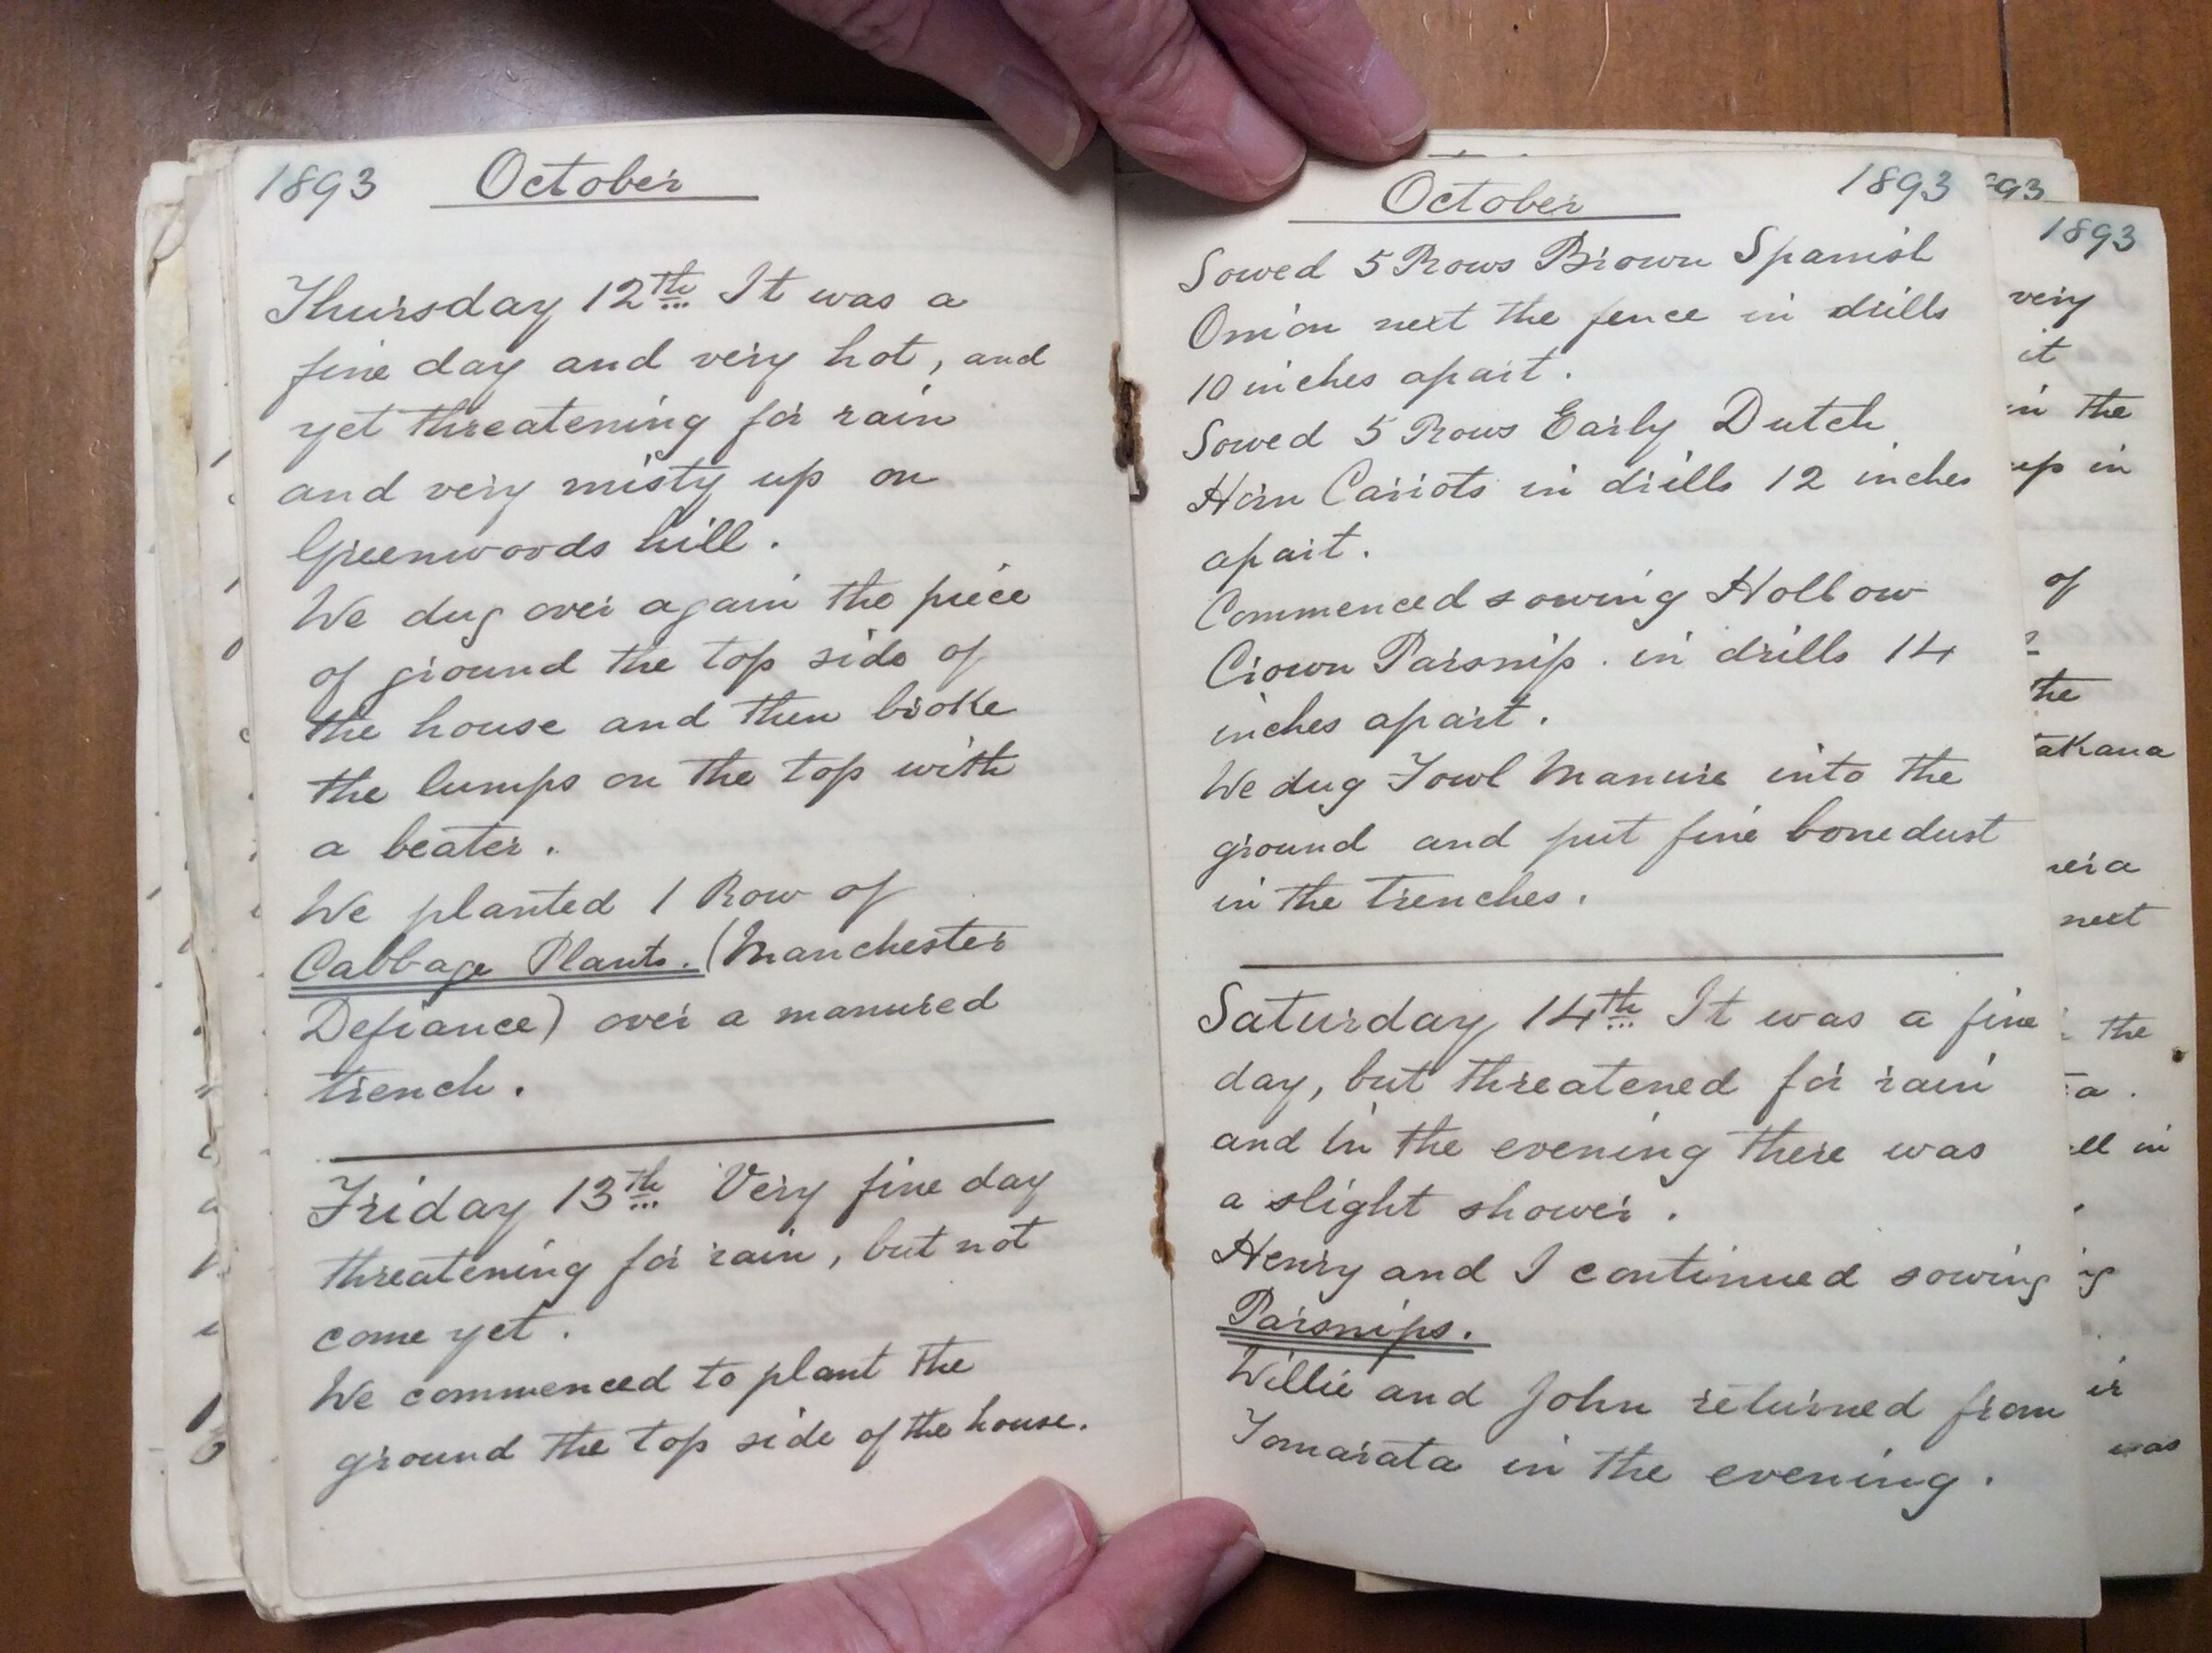 1893 October
Thursday 12th It was a
fine day and very hot, and
yet threatening for rain
and very misty up on
Greenwoods hill.
We dug over again the piece
of ground the top side of
the house and then broke
the lumps on the top with
a beater.
We planted 1 Row of
Cabbage Plants. (Manchester
Defiance) over a manured
trench.
Friday 13th Very fine day
threatening for rain, but not
come yet.
We commenced to plant the
ground the top side of the house.
October 1893
Sowed 5 Rows Brown Spanish
Onion next the fence in drills
10 inches apart.
Sowed 5 Rows Early Dutch
Horn Carrots in drills 12 inches
apart.
Commenced sowing Hollow
Crown Parsnip. in drills 14
inches apart.
We dug Fowl Manure into the
ground and put fine bonedust
in the trenches.
Saturday 14th It was a fine
day, but threatened for rain
and in the evening there was
a slight shower.
Henry and I continued sowing
Parsnips.
Willie and John returned from
Tomarata in the evening.
1893
very
it
in the
up in
of
the
akana
next
the
was